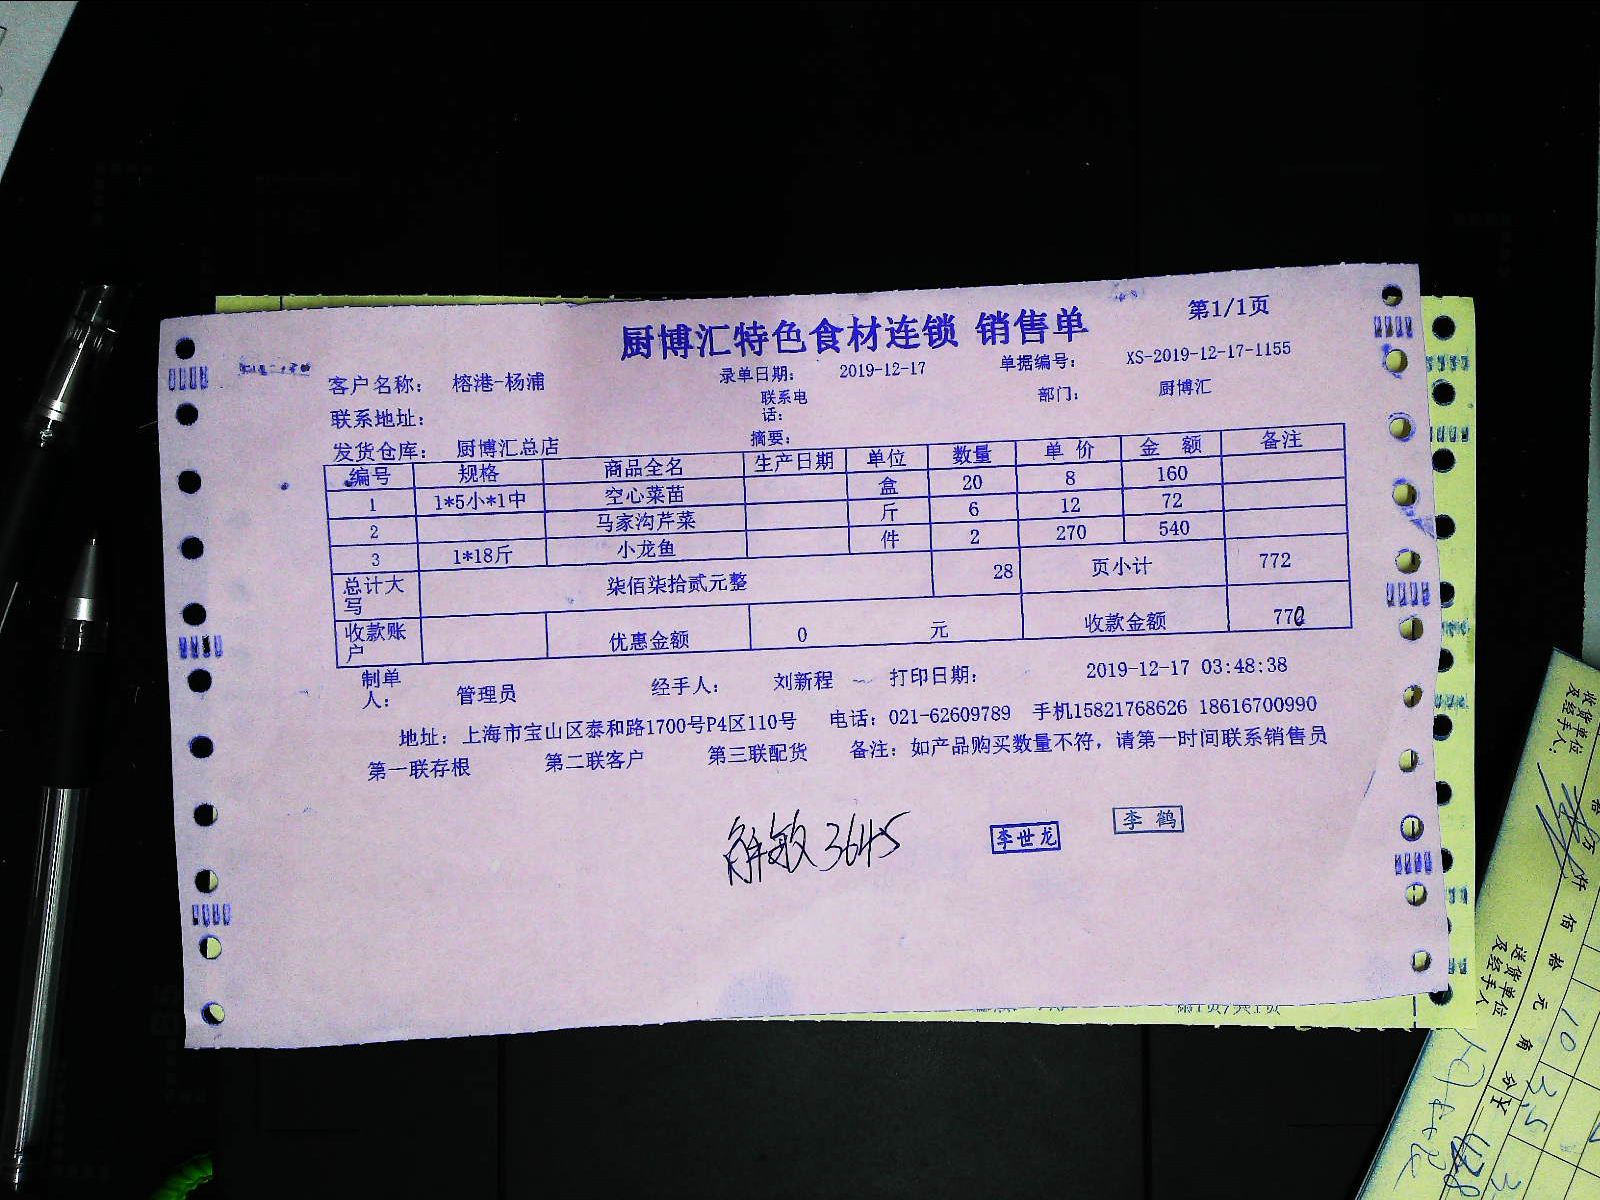 厨博汇特色食材连锁 销售单
第1/1页
客户名称： 榕港-杨浦 录单日期： 2019-12-17 单据编号： XS-2019-12-17-1155
联系地址： 联系电话： 部门： 厨博汇
发货仓库： 厨博汇总店 摘要：
编号 规格 商品全名 生产日期 单位 数量 单价 金额 备注
1 1*5小*1中 空心菜苗 盒 20 8 160
2 马家沟芹菜 斤 6 12 72
3 1*18斤 小龙鱼 件 2 270 540
总计大写 柒佰柒拾贰元整 28 页小计 772
收款账户 优惠金额 0 元 收款金额 772
制单人： 管理员 经手人： 刘新程 打印日期： 2019-12-17 03:48:38
地址：上海市宝山区泰和路1700号P4区110号 电话：021-62609789 手机15821768626 18616700990
第一联存根 第二联客户 第三联配货 备注：如产品购买数量不符，请第一时间联系销售员
敏 3645
李世龙
李鹤
第1页/共1页
收货单位
及经手人：
万 仟 佰 拾 元 角 分
送货单位
及经手人